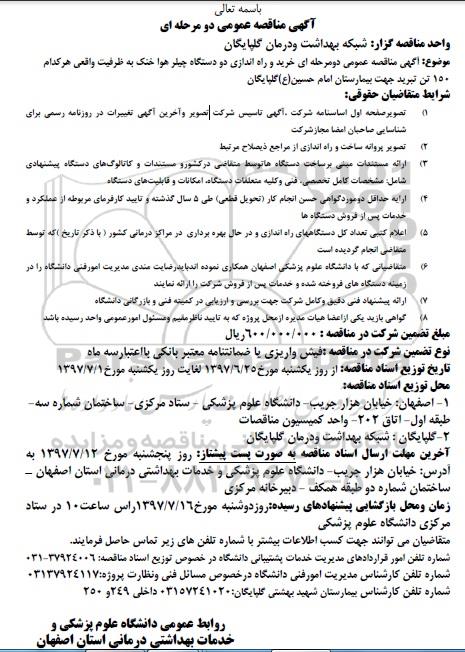 باسمه تعالی
آگهی مناقصه عمومی دو مرحله ای
واحد مناقصه گزار: شبکه بهداشت ودرمان گلپایگان
موضوع: آگهی مناقصه عمومی دومرحله ای خرید و راه اندازی دو دستگاه چیلر هوا خنک به ظرفیت واقعی هرکدام
۱۵۰ تن تبرید جهت بیمارستان امام حسین(ع)گلپایگان
شرایط متقاضیان حقوقی:
۱) تصویرصفحه اول اساسنامه شرکت ،آگهی تاسیس شرکت تصویر وآخرین آگهی تغییرات در روزنامه رسمی برای
شناسایی صاحبان امضا مجازشرکت
۲) تصویر پروانه ساخت و راه اندازی از مراجع ذیصلاح مرتبط
۳) ارائه مستندات مبنی برساخت دستگاه هاتوسط متقاضی درکشورو مستندات و کاتالوگ‌های دستگاه پیشنهادی
شامل: مشخصات کامل تخصصی، فنی وکلیه متعلقات دستگاه، امکانات و قابلیت‌های دستگاه
۴) ارایه حداقل دوموردگواهی حسن انجام کار (تحویل قطعی) طی ۵ سال گذشته و تایید کارفرمای مربوطه از عملکرد و
خدمات پس از فروش دستگاه ها
۵) اعلام کتبی تعداد کل دستگاههای راه اندازی و در حال بهره برداری در مراکز درمانی کشور ( با ذکر تاریخ )که توسط
متقاضی انجام گردیده است
۶) متقاضیانی که با دانشگاه علوم پزشکی اصفهان همکاری نموده اندبایدرضایت مندی مدیریت امورفنی دانشگاه را در
زمینه دستگاه های فروخته شده و خدمات پس از فروش شرکت را ارائه نمایند
۷) ارائه پیشنهاد فنی دقیق وکامل شرکت جهت بررسی و ارزیابی در کمیته فنی و بازرگانی دانشگاه
۸) گواهی بازید یکی ازاعضا هیات مدیره ازمحل پروژه که به تایید ناظرمقیم ومسئول امورعمومی واحد رسیده باشد
مبلغ تضمین شرکت در مناقصه : ۶۰۰/۰۰۰/۰۰۰ریال
نوع تضمین شرکت در مناقصه :فیش واریزی یا ضمانتنامه معتبر بانکی بااعتبارسه ماه
تاریخ توزیع اسناد مناقصه: از روز یکشنبه مورخ۱۳۹۷/۶/۲۵ لغایت روز یکشنبه مورخ۱۳۹۷/۷/۱
محل توزیع اسناد مناقصه:
۱- اصفهان: خیابان هزار جریب- دانشگاه علوم پزشکی - ستاد مرکزی- ساختمان شماره سه-
طبقه اول- اتاق ۲۰۲- واحد کمیسیون مناقصات
۲-گلپایگان : شبکه بهداشت ودرمان گلپایگان
آخرین مهلت ارسال اسناد مناقصه به صورت پست پیشتاز: روز پنجشنبه مورخ ۱۳۹۷/۷/۱۲ به
آدرس: خیابان هزار جریب- دانشگاه علوم پزشکی و خدمات بهداشتی درمانی استان اصفهان _
ساختمان شماره دو طبقه همکف - دبیرخانه مرکزی
زمان ومحل بازگشایی پیشنهادهای رسیده:روزدوشنبه مورخ۱۳۹۷/۷/۱۶راس ساعت۱۰ در ستاد
مرکزی دانشگاه علوم پزشکی
متقاضیان می توانند جهت کسب اطلاعات بیشتر با شماره تلفن های زیر تماس حاصل فرمایند.
شماره تلفن امور قراردادهای مدیریت خدمات پشتیبانی دانشگاه در خصوص توزیع اسناد مناقصه: ۳۷۹۲۴۰۰۶-۰۳۱
شماره تلفن کارشناس مدیریت امورفنی دانشگاه درخصوص مسائل فنی ونظارت پروژه:۰۳۱۳۷۹۲۴۱۱۷
شماره تلفن کارشناس بیمارستان شهید بهشتی گلپایگان:۰۳۱۵۷۲۴۱۰۲۰ داخلی ۲۴۹و ۲۵۰
روابط عمومی دانشگاه علوم پزشکی و
خدمات بهداشتی درمانی استان اصفهان